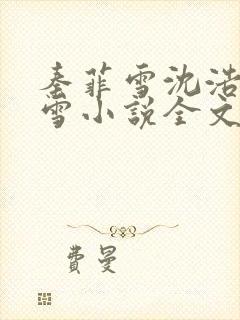 秦菲雪沈浩
雪小说全文
费曼